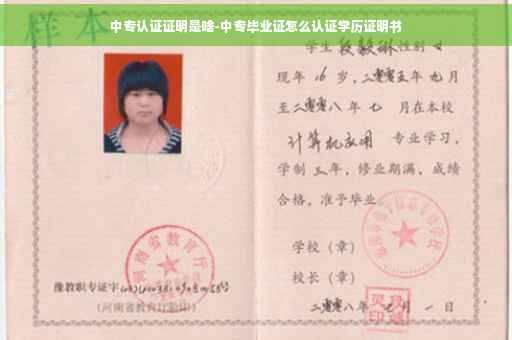 中专认证证明是啥-中专毕业证怎么认证学历证明书
样本
学生段毅琳性别女
现年 16 岁,二零零五年 九月
至二零零八年 七 月在本校
计算机应用 专业学习,
学制 三年,修业期满,成绩
合格,准予毕业
学校(章)
校长(章)
二零零八年 七 月 一 日
河南省教育厅
豫教职专证字
(河南省教育厅验印)